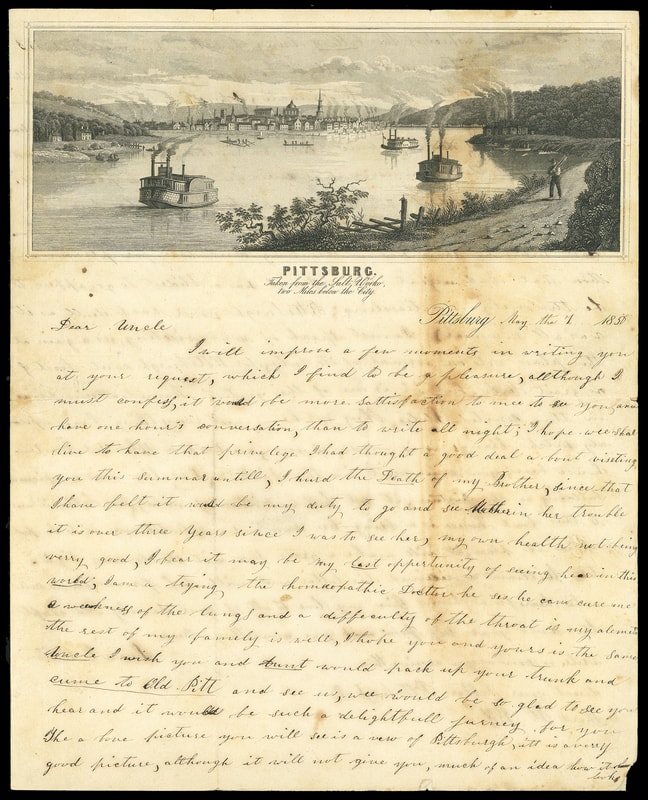 PITTSBURG.
Taken from the Salt Works,
two Miles below the City.
Pittsburg May the 1 1850
Dear Uncle
I will improve a few moments in writing you
at your request, which I find to be a pleasure, although I
must confess, it would be more sattisfaction to mee to see you, and
have one hour's conversation, than to write all night; I hope wee shal
live to have that privelege I had thought a good deal a bout visiting
you this summar untill, I hurd the Death of my Brother, since that
I have felt it would be my duty to go and see Mother in her trouble
it is over three years since I was to see her, my own health not being
verry good, I fear it may be my last opportunity of seeing hear in this
world; I am a trying the homeopathic Docttor he ses he can cure me
a weakness of the lungs and a diffeculty of the throat is my
the rest of my famely is well, I hope you and yours is the same
Uncle I wish you and Aunt would pack up your trunk and
cume to Old Pitt and see us, wee would be so glad to see you
hear and it would be such a delightfull jurney for you
The a bove picture you will see is a vew of Pittsburgh, itt is a verry
good picture, although it will not give you, much of an idea how it
looks